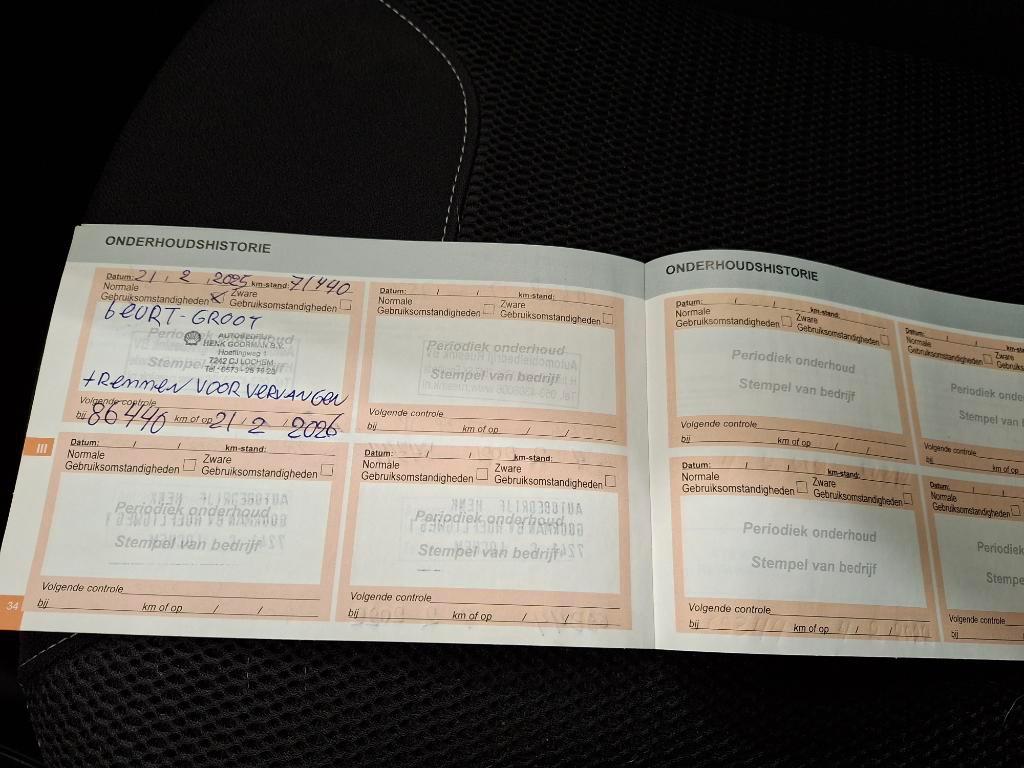 ONDERHOUDSHISTORIE
Datum: 21 / 2 / 2025 km-stand: 71440
Normale Gebruiksomstandigheden X Zware Gebruiksomstandigheden
beurt-GROOT
Periodiek onderhoud
AUTOBEDRIJF
HENK GOORMAN B.V.
Hoeflingweg 1
7242 CJ LOCHEM
Stempel van bedrijf
+Remmen VOOR VERVANGEN
Volgende controle
bij 86440 km of op 21 / 2 / 2026
Datum: / / km-stand:
Normale Gebruiksomstandigheden Zware Gebruiksomstandigheden
Periodiek onderhoud
Stempel van bedrijf
Volgende controle
bij km of op / /
III
Datum: / / km-stand:
Normale Gebruiksomstandigheden Zware Gebruiksomstandigheden
Periodiek onderhoud
Stempel van bedrijf
Volgende controle
bij km of op / /
Datum: / / km-stand:
Normale Gebruiksomstandigheden Zware Gebruiksomstandigheden
Periodiek onderhoud
Stempel van bedrijf
Volgende controle
bij km of op / /
34
ONDERHOUDSHISTORIE
Datum: / / km-stand:
Normale Gebruiksomstandigheden Zware Gebruiksomstandigheden
Periodiek onderhoud
Stempel van bedrijf
Volgende controle
bij km of op / /
Datum: / / km-st
Normale Gebruiksomstandigheden Zware Gebruiks
Periodiek onde
Stempel van
Volgende controle
bij km of op
Datum: / / km-stand:
Normale Gebruiksomstandigheden Zware Gebruiksomstandigheden
Periodiek onderhoud
Stempel van bedrijf
Volgende controle
bij km of op / /
Datum: /
Normale Gebruiksomstandigheden
Periodiek
Stempe
Volgende controle
bij km of op